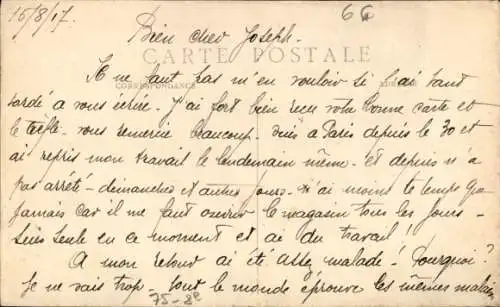 15/8/17.
66
Bien cher Joseph.
CARTE POSTALE
CORRESPONDANCE
Il ne faut pas m'en vouloir si j'ai tant
tardé a vous écrire. J'ai fort bien reçu votre bonne carte et
le trèfle. vous remercie beaucoup. suis a Paris depuis le 30 et
ai repris mon travail le lendemain même. et depuis n'a
pas arrêté - dimanches et autres jours. j'ai moins le temps que
jamais car il me faut ouvrir le magasin tous les jours -
suis seule en ce moment et ai du travail !
A mon retour ai été assez malade ! Pourquoi ?
je ne sais trop. tout le monde éprouve les mêmes malaises
75-8e